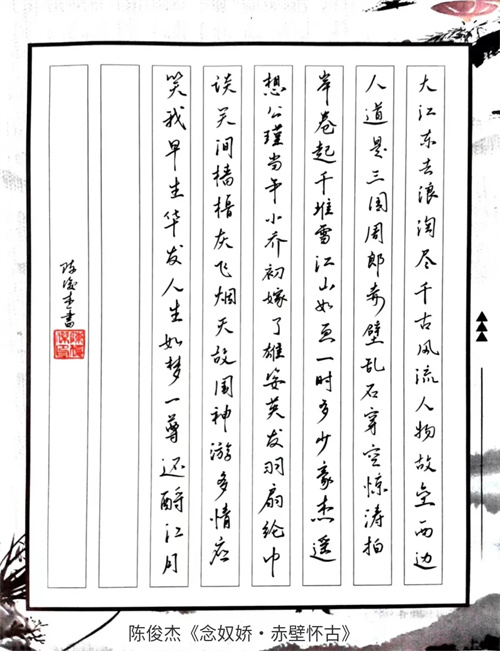 大江东去浪淘尽千古风流人物故垒西边
人道是三国周郎赤壁乱石穿空惊涛拍
岸卷起千堆雪江山如画一时多少豪杰遥
想公瑾当年小乔初嫁了雄姿英发羽扇纶巾
谈笑间樯橹灰飞烟灭故国神游多情应
笑我早生华发人生如梦一尊还酹江月
陈俊杰书
陈俊杰《念奴娇·赤壁怀古》